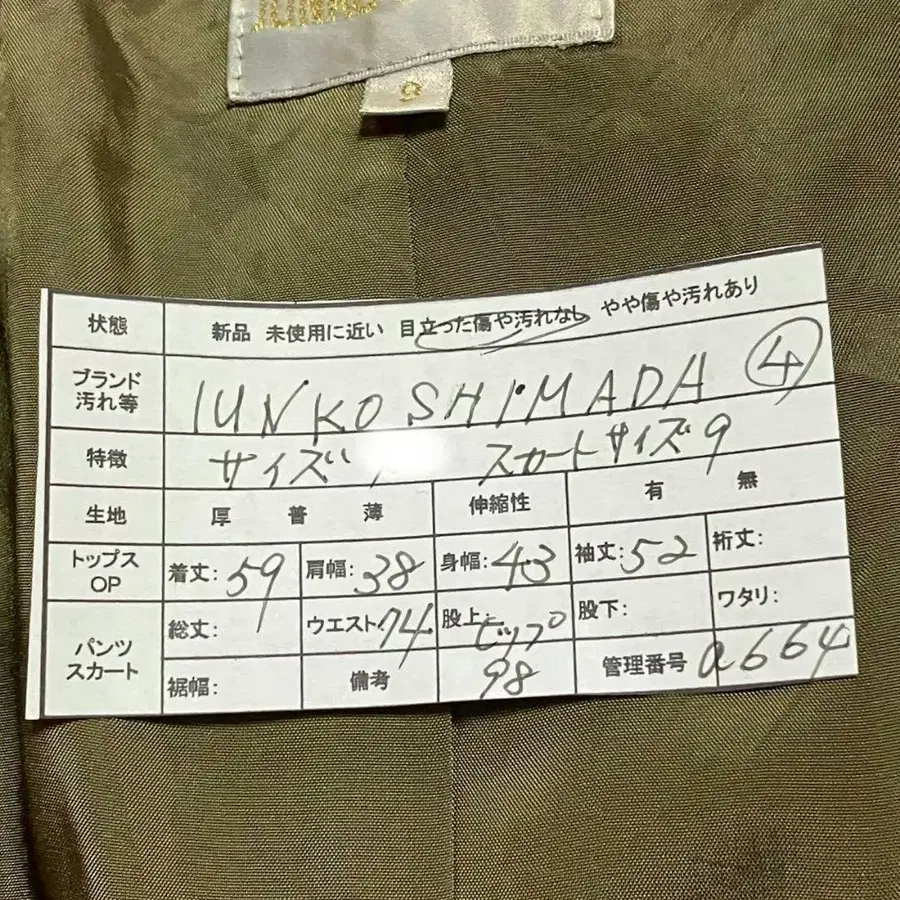 9
状態 新品 未使用に近い 目立った傷や汚れなし やや傷や汚れあり
ブランド 汚れ等 IUNKO SHIMADA ④
特徴 サイズ スカートサイズ9
生地 厚 普 薄 伸縮性 有 無
トップス OP 着丈:59 肩幅:38 身幅:43 袖丈:52 裄丈:
パンツ スカート 総丈: ウエスト:74 股上: ヒップ 股下: ワタリ:
裾幅: 備考 98 管理番号 a664